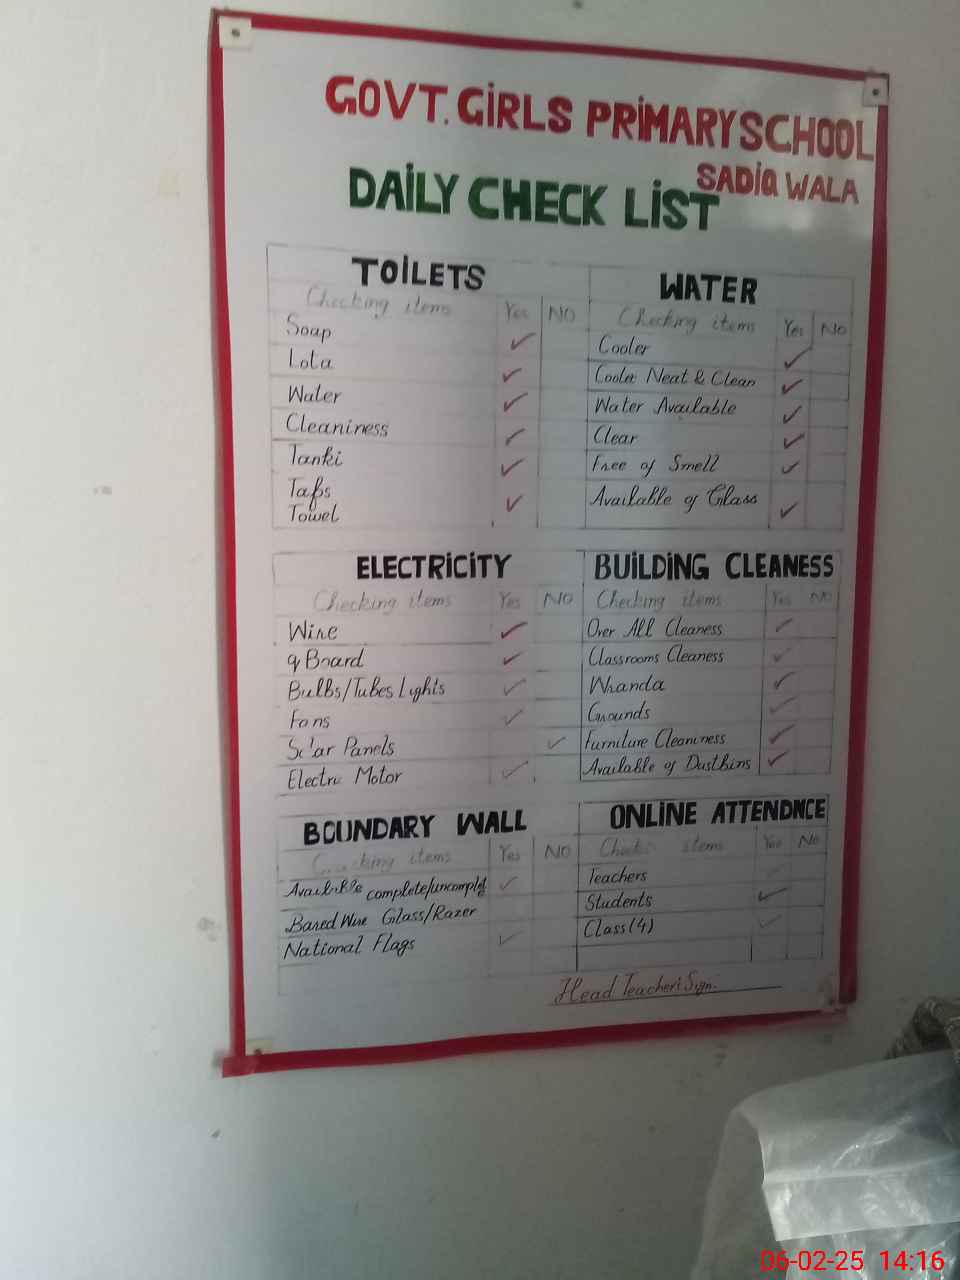 GOVT. GIRLS PRIMARY SCHOOL
SADIQ WALA
DAILY CHECK LIST
TOILETS
Checking items Yes NO
Soap ✓
Lota ✓
Water ✓
Cleaniness ✓
Tanki ✓
Taps ✓
Towel
WATER
Checking items Yes No
Cooler ✓
Cooler Neat & Clean ✓
Water Available ✓
Clear ✓
Free of Smell ✓
Available of Glass ✓
ELECTRICITY
Checking items Yes NO
Wire ✓
Board ✓
Bulbs/Tubes Lights ✓
Fans ✓
Solar Panels ✓
Electric Motor ✓
BUILDING CLEANESS
Checking items Yes No
Over All Cleaness ✓
Classrooms Cleaness ✓
Wranda ✓
Grounds ✓
Furniture Cleaniness ✓
Available of Dustbins ✓
BOUNDARY WALL
Checking items Yes NO
Available complete/uncomplet ✓
Bared Wire Glass/Razer
National Flags ✓
ONLINE ATTENDNCE
Checki items Yes No
Teachers
Students ✓
Class (4) ✓
Head Teacher's Sign:
06-02-25 14:16